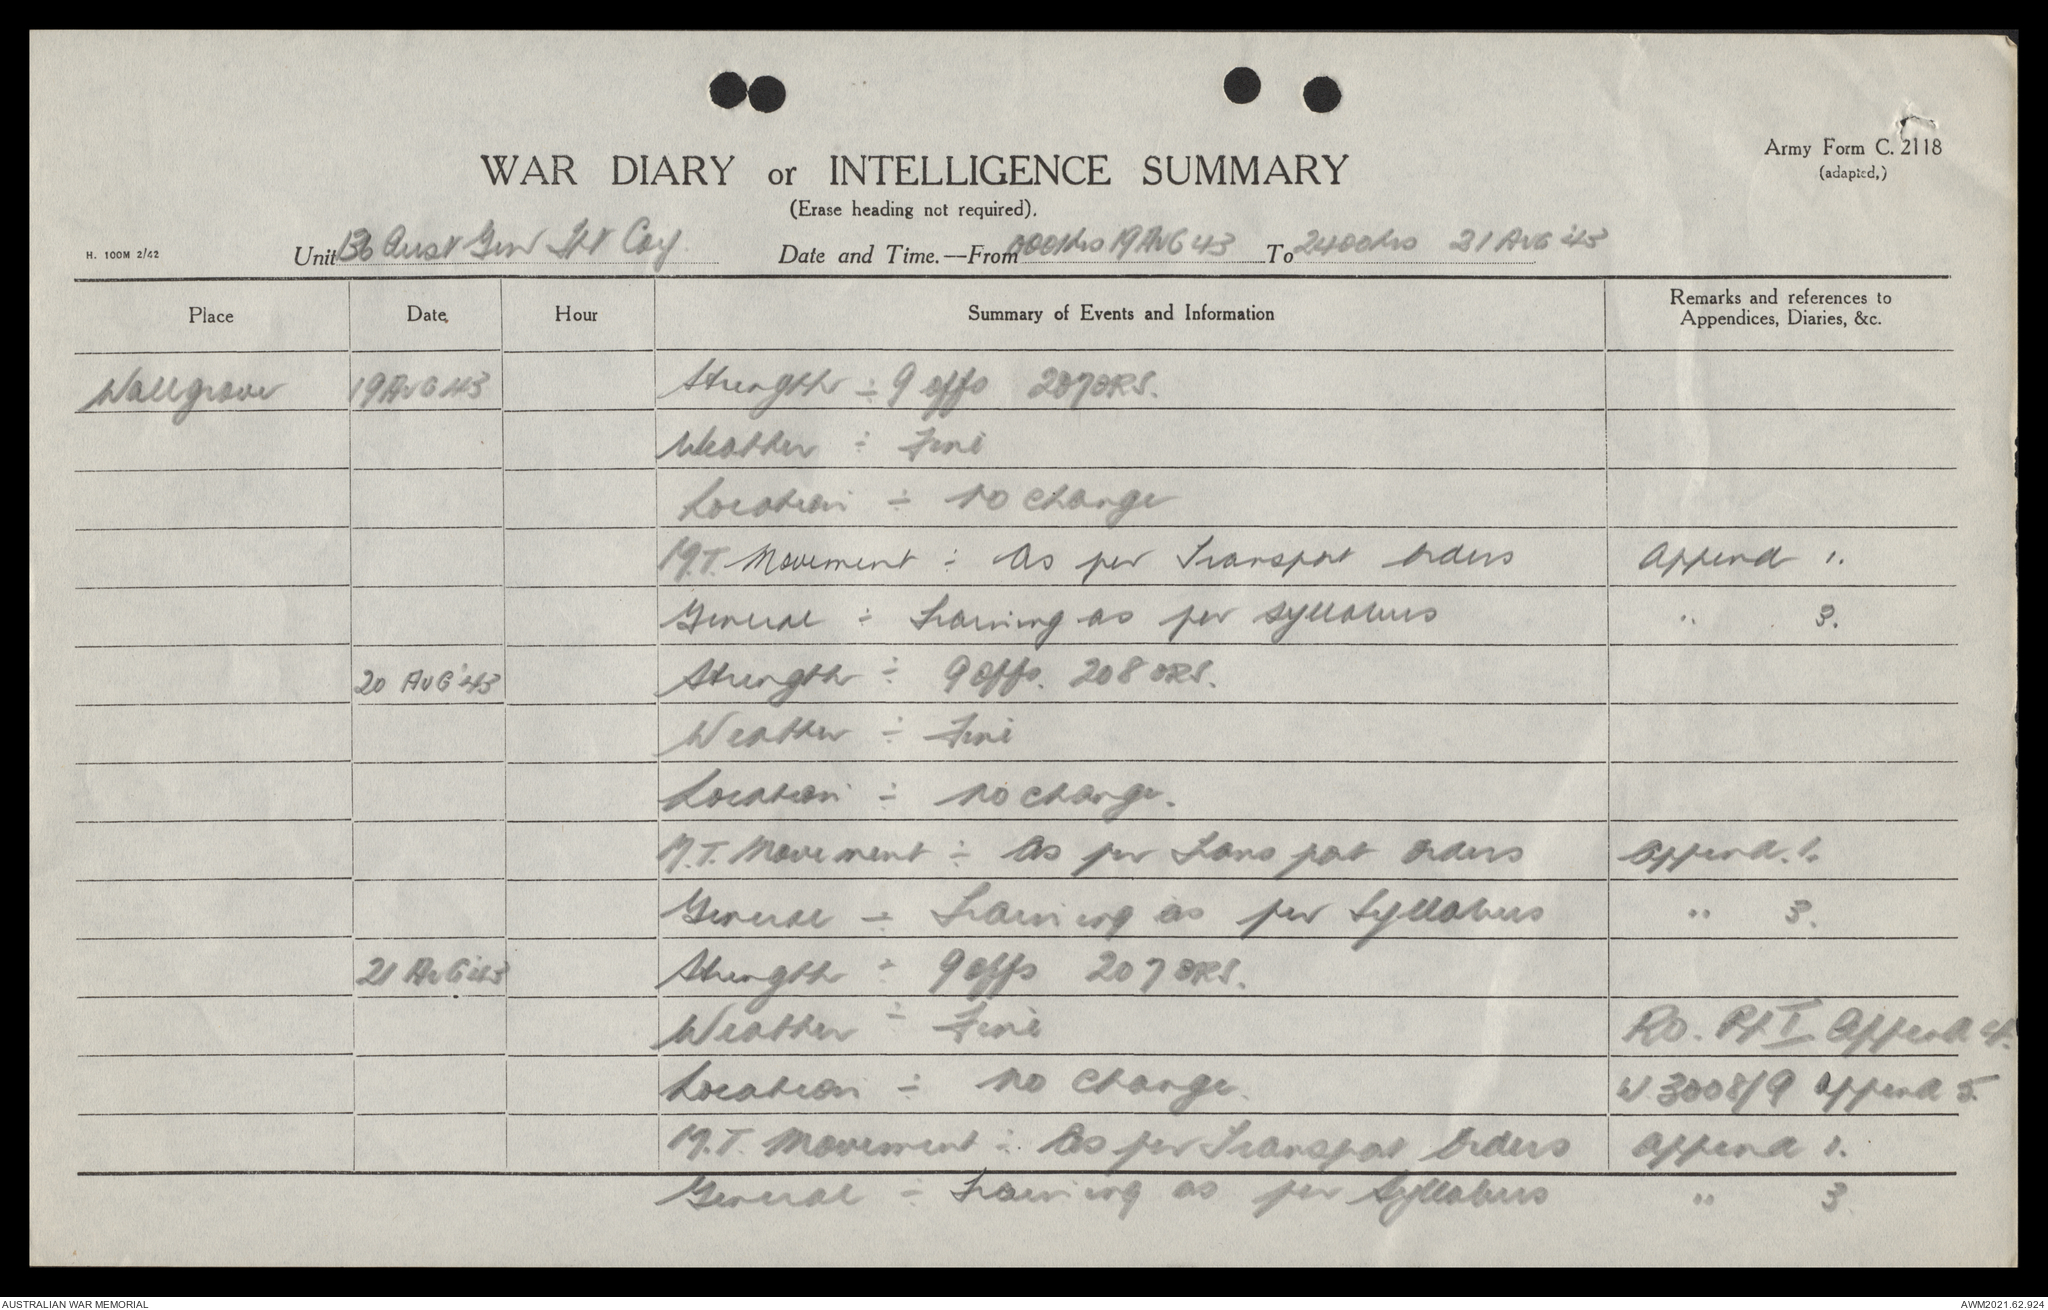 Army Form C. 2118
(adapted,)
WAR DIARY or INTELLIGENCE SUMMARY
(Erase heading not required).
H. 100M 2/42
Unit 136 Aust Gen Tpt Coy. Date and Time.—From 0001hrs 19 AUG 43 To 2400hrs 21 AUG '43
Place Date Hour Summary of Events and Information Remarks and references to
Appendices, Diaries, &c.
Wallgrove 19 AUG 43 Strength ÷ 9 offs 207 ORS.
Weather ÷ Fine
Location ÷ No change
M.T. Movement ÷ As per Transport Orders Append 1.
General ÷ Training as per Syllabus " 3.
20 AUG '43 Strength ÷ 9 offs. 208 ORS.
Weather ÷ Fine
Location ÷ No change.
M.T. Movement ÷ As per Transport Orders Append. 1.
General ÷ Training as per Syllabus " 3.
21 AUG '43 Strength ÷ 9 offs 207 ORS.
Weather ÷ Fine R.O. Pt I Append 4.
Location ÷ No change. W 3008/9 Append 5
M.T. Movement ÷ As per Transport Orders Append 1.
General ÷ Training as per Syllabus " 3.
AUSTRALIAN WAR MEMORIAL AWM2021.62.924